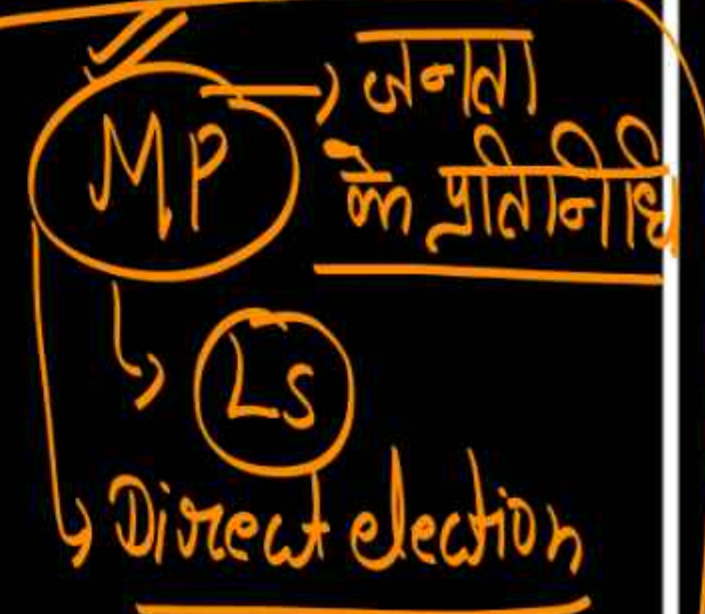 MP → जनता
के प्रतिनिधि
↳ LS
↳ Direct election